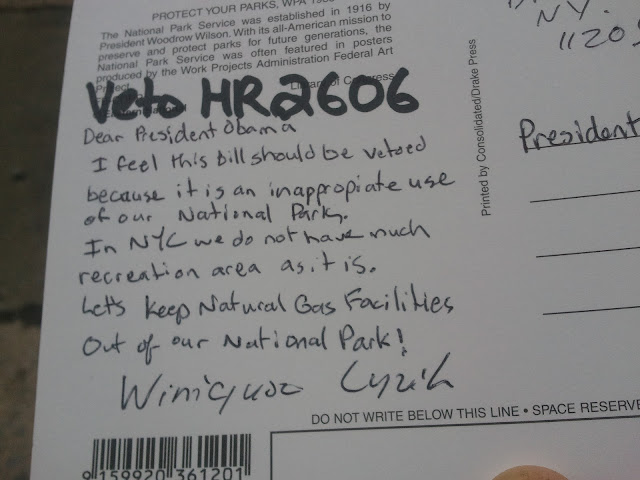 PROTECT YOUR PARKS, WPA
The National Park Service was established in 1916 by
President Woodrow Wilson. With its all-American mission to
preserve and protect parks for future generations, the
National Park Service was often featured in posters
produced by the Work Projects Administration Federal Art
Project.
Library of Congress
Veto HR2606
Dear President Obama
I feel this Bill should be vetoed
because it is an inappropiate use
of our National Park.
In NYC we do not have much
recreation area as it is.
Let's keep Natural Gas Facilities
Out of our National Park!
DO NOT WRITE BELOW THIS LINE • SPACE RESERVE
9 159920 361201
Printed by Consolidated/Drake Press
NY.
1120
President